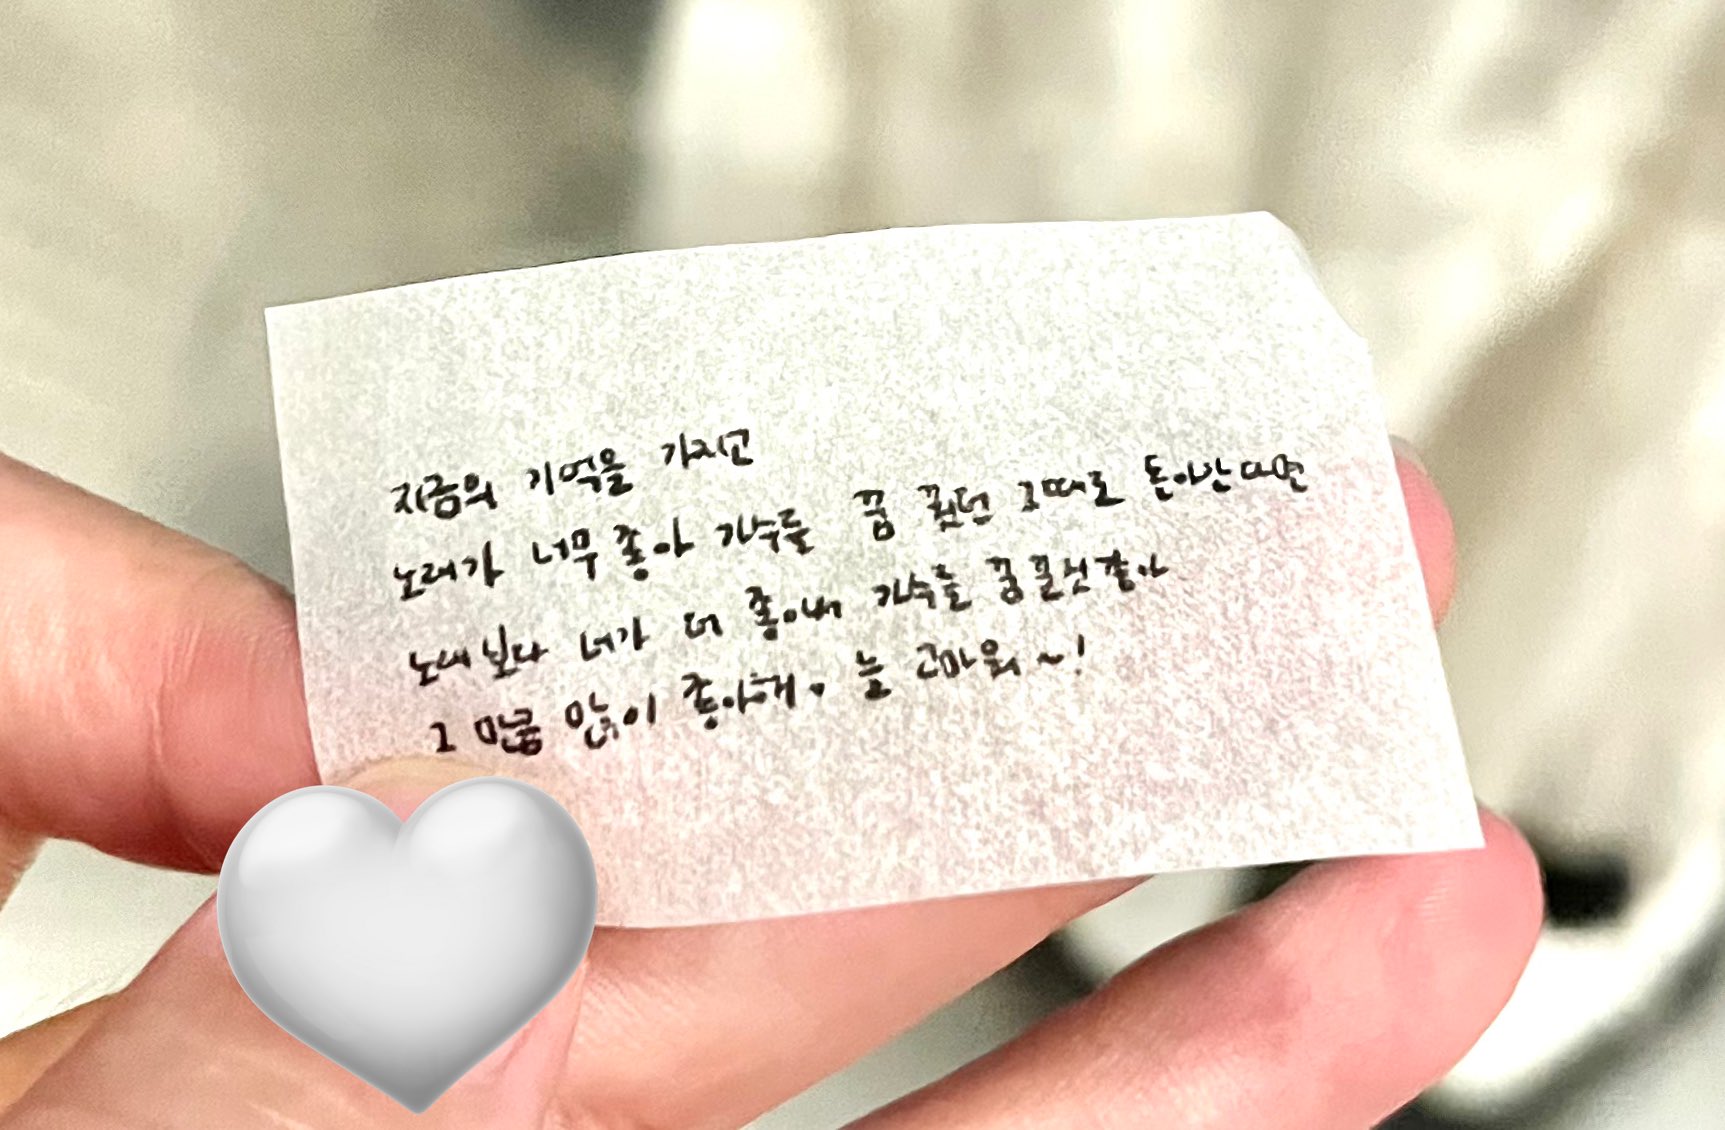 지금의 기억을 가지고
노래가 너무 좋아 가수를 꿈 꿨던 그때로 돌아간다면
노래보다 너가 더 좋아서 가수를 꿈꿀것같아
그 만큼 많이 좋아해. 늘 고마워~!